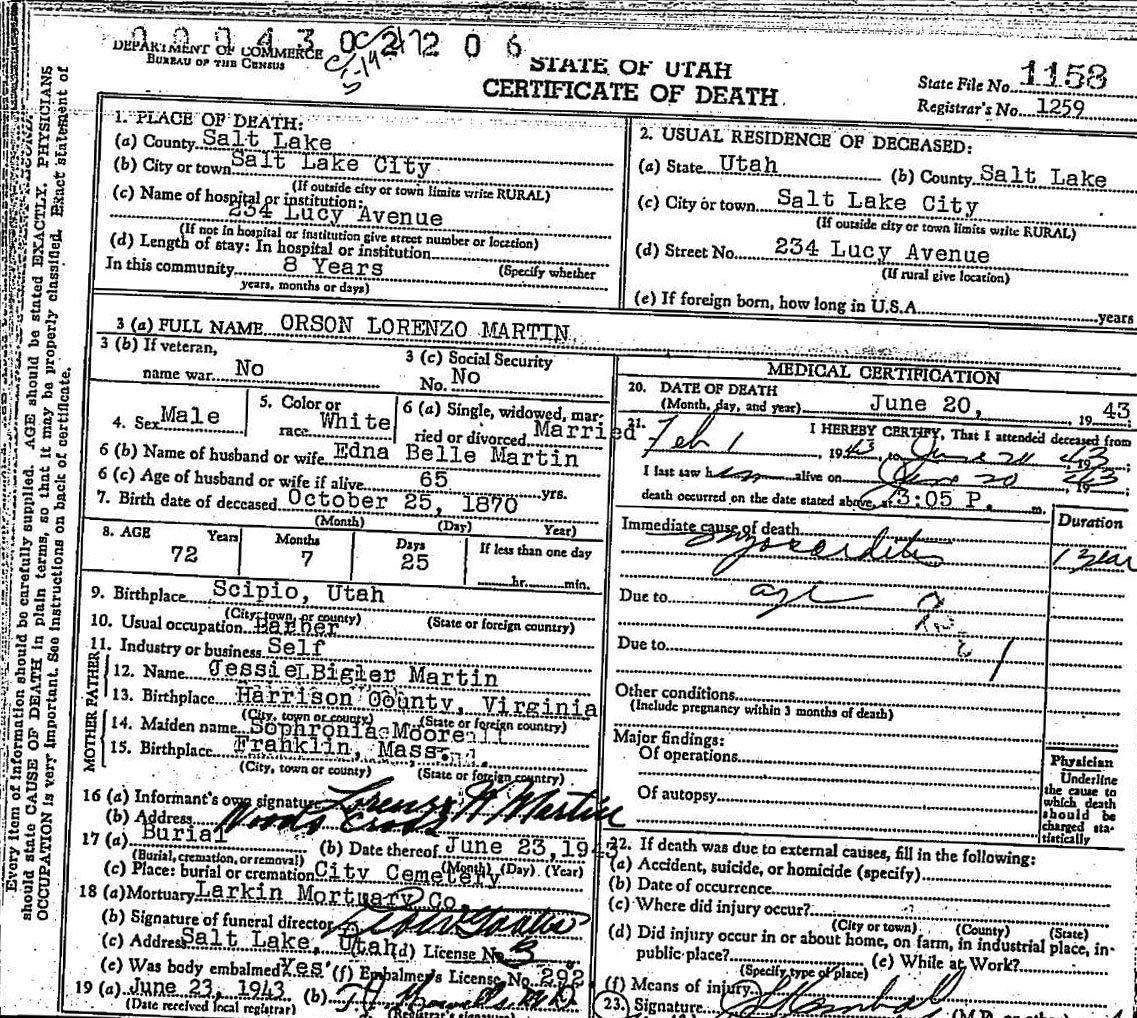 0 0 0 4 3 0 2 1 2 0 6
DEPARTMENT OF COMMERCE
BUREAU OF THE CENSUS
STATE OF UTAH
CERTIFICATE OF DEATH
State File No. 1158
Registrar's No. 1259
1. PLACE OF DEATH:
(a) County Salt Lake
(b) City or town Salt Lake City
(If outside city or town limits write RURAL)
(c) Name of hospital or institution:
234 Lucy Avenue
(If not in hospital or institution give street number or location)
(d) Length of stay: In hospital or institution
In this community 8 Years (Specify whether
years, months or days)
2. USUAL RESIDENCE OF DECEASED:
(a) State Utah (b) County Salt Lake
(c) City or town Salt Lake City
(If outside city or town limits write RURAL)
(d) Street No. 234 Lucy Avenue
(If rural give location)
(e) If foreign born, how long in U.S.A. years
3 (a) FULL NAME ORSON LORENZO MARTIN
3 (b) If veteran,
name war No
3 (c) Social Security
No. No
4. Sex Male
5. Color or
race White
6 (a) Single, widowed, mar-
ried or divorced Married
6 (b) Name of husband or wife Edna Belle Martin
6 (c) Age of husband or wife if alive 65 yrs.
7. Birth date of deceased October 25, 1870
(Month) (Day) Year)
8. AGE Years Months Days If less than one day
72 7 25 hr. min.
9. Birthplace Scipio, Utah
(City, town, or county) (State or foreign country)
10. Usual occupation Barber
11. Industry or business Self
FATHER
12. Name Jessie Bigler Martin
13. Birthplace Harrison County, Virginia
(City, town or county) (State or foreign country)
MOTHER
14. Maiden name Sophronia Moore
15. Birthplace Franklin, Mass
(City, town or county) (State or foreign country)
16 (a) Informant's own signature Lorenzo W Martin
(b) Address Woods Cross
17 (a) Burial (b) Date thereof June 23, 1943
(Burial, cremation, or removal) (Month) (Day) (Year)
(c) Place: burial or cremation City Cemetery
18 (a) Mortuary Larkin Mortuary Co.
(b) Signature of funeral director
(c) Address Salt Lake, Utah (d) License No. 3
(e) Was body embalmed? Yes (f) Embalmer's License No. 292
19 (a) June 23, 1943 (b)
(Date received local registrar) (Registrar's signature)
MEDICAL CERTIFICATION
20. DATE OF DEATH
(Month, day, and year) June 20, 19 43
21. I HEREBY CERTIFY, That I attended deceased from
Feb 1, 1943, to June 20 1943;
I last saw him alive on June 20 1943;
death occurred on the date stated above, at 3:05 P. m.
Immediate cause of death Duration
Myocarditis 1 year
Due to age
Due to
Other conditions
(Include pregnancy within 3 months of death)
Major findings:
Of operations
Of autopsy
Physician
Underline
the cause to
which death
should be
charged sta-
tistically
22. If death was due to external causes, fill in the following:
(a) Accident, suicide, or homicide (specify)
(b) Date of occurrence
(c) Where did injury occur?
(City or town) (County) (State)
(d) Did injury occur in or about home, on farm, in industrial place, in-
public place? (e) While at Work?
(Specify type of place)
(f) Means of injury
23. Signature
Every item of information should be carefully supplied. AGE should be stated EXACTLY. PHYSICIANS
should state CAUSE OF DEATH in plain terms, so that it may be properly classified. Exact statement of
OCCUPATION is very important. See instructions on back of certificate.